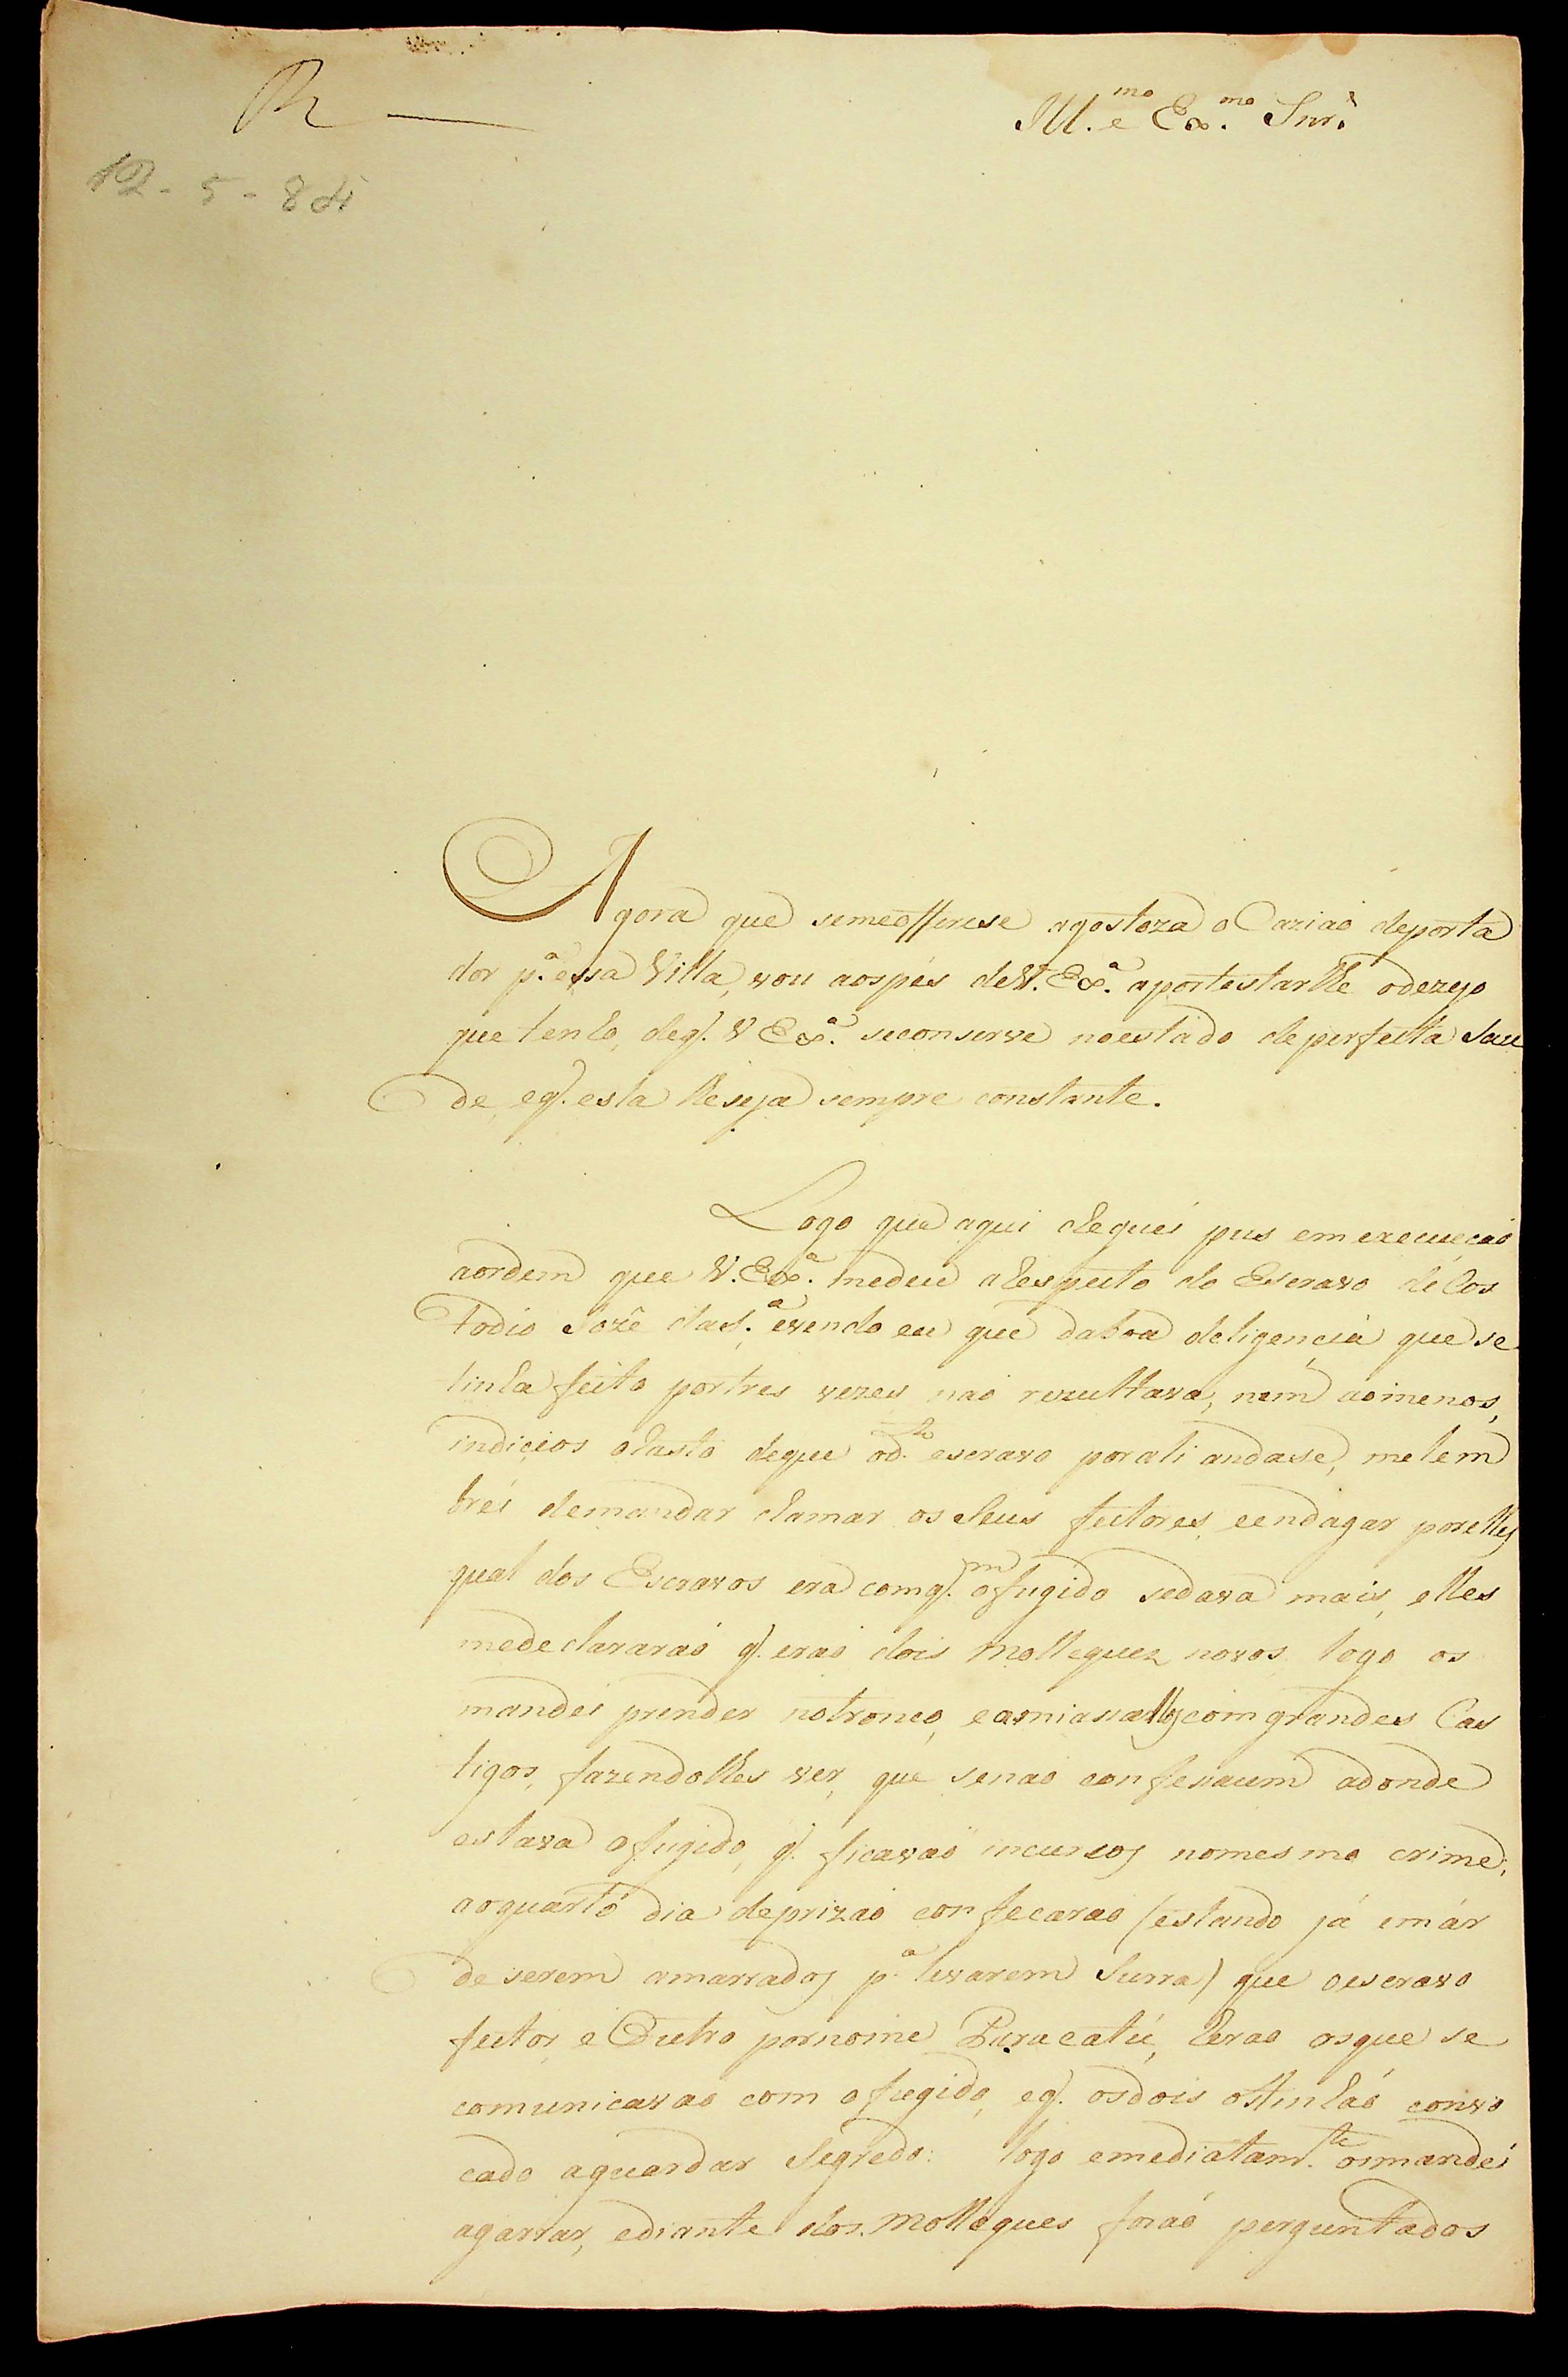 R —
Ill.mo e Ex.mo Snr.
12-5-8
Agora que semeofferese agostoza oCaziaõ deporta
dor p.a essa Villa, vou aospés deV. Ex.a aportestarlhe odezejo
que tenho, deq. V Ex.a seconserve noestado deperfeita Sau
de, eq. esta lheseja sempre constante.
Logo que aqui cheguei pus emexecuçaõ
aordem que V. Ex.a medeu aRespeito do Escravo deCos
todio Jozê daS.a evendo eu que daboa deligencia que se
tinha feito portres vezes, naõ rezultava, nem aomenos,
indicios oLasto deque od.o escravo porali andase, melem
brei demandar chamar os Seus feitores, eendagar porelles
qual dos Escravos era comq.m ofugido sedava mais, elles
medeclararaõ q. eraõ dois Mollequez novos, logo os
mandei prender notronco, e com grandes Cas
tigos, fazendolhes ver, que senaõ confesacem adonde
estava ofugido, q. ficavaõ incursos nomesmo crime,
aoquarto dia deprizaõ confecaraõ (estando já em ár
de serem amarrados p.a levarem Surra) que oescravo
feitor, e Outro pornome Paracatú, heraõ osque se
comunicavaõ com ofugido, eq. osdois ostinhaõ convo
cado aguardar Segredo: logo emediatam.te osmandei
agarrar, ediante dos Molleques foraõ perguntados